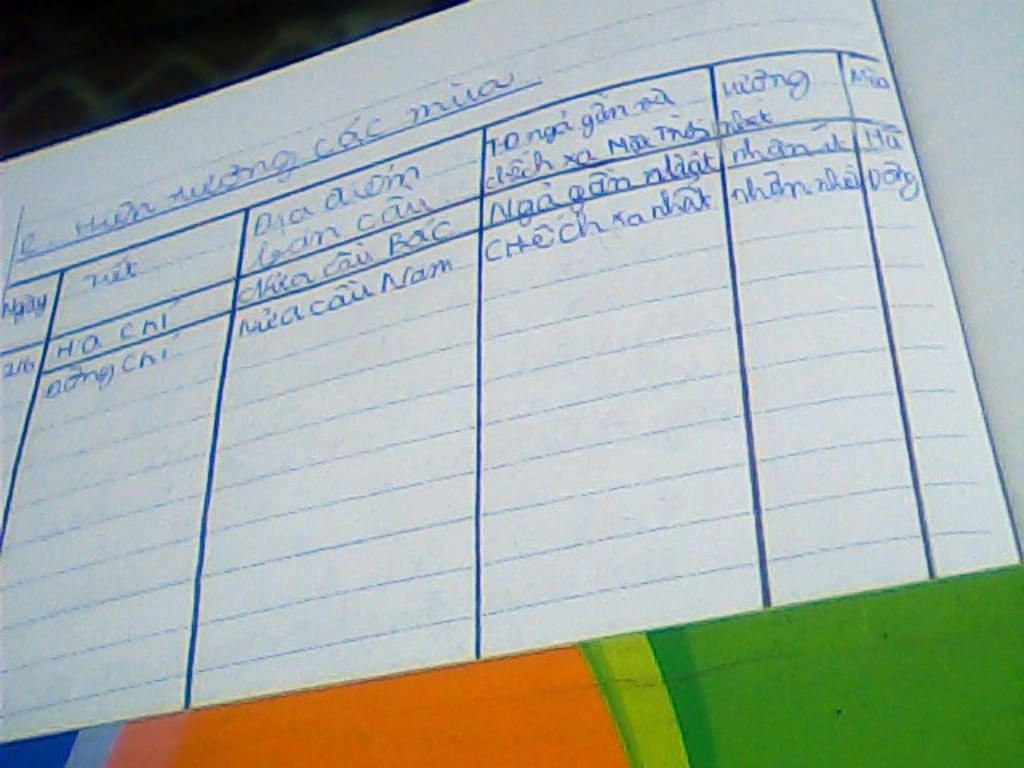 2. Hiện tượng các mùa
Ngày Tiết Địa điểm T.Đ ngả gần và Lượng Mùa
bán cầu chếch xa Mặt Trời nhiệt
21/6 Hạ chí Nửa cầu Bắc Ngả gần nhất nhận Hạ
Đông chí Nửa cầu Nam Chếch xa nhất nhận Đông